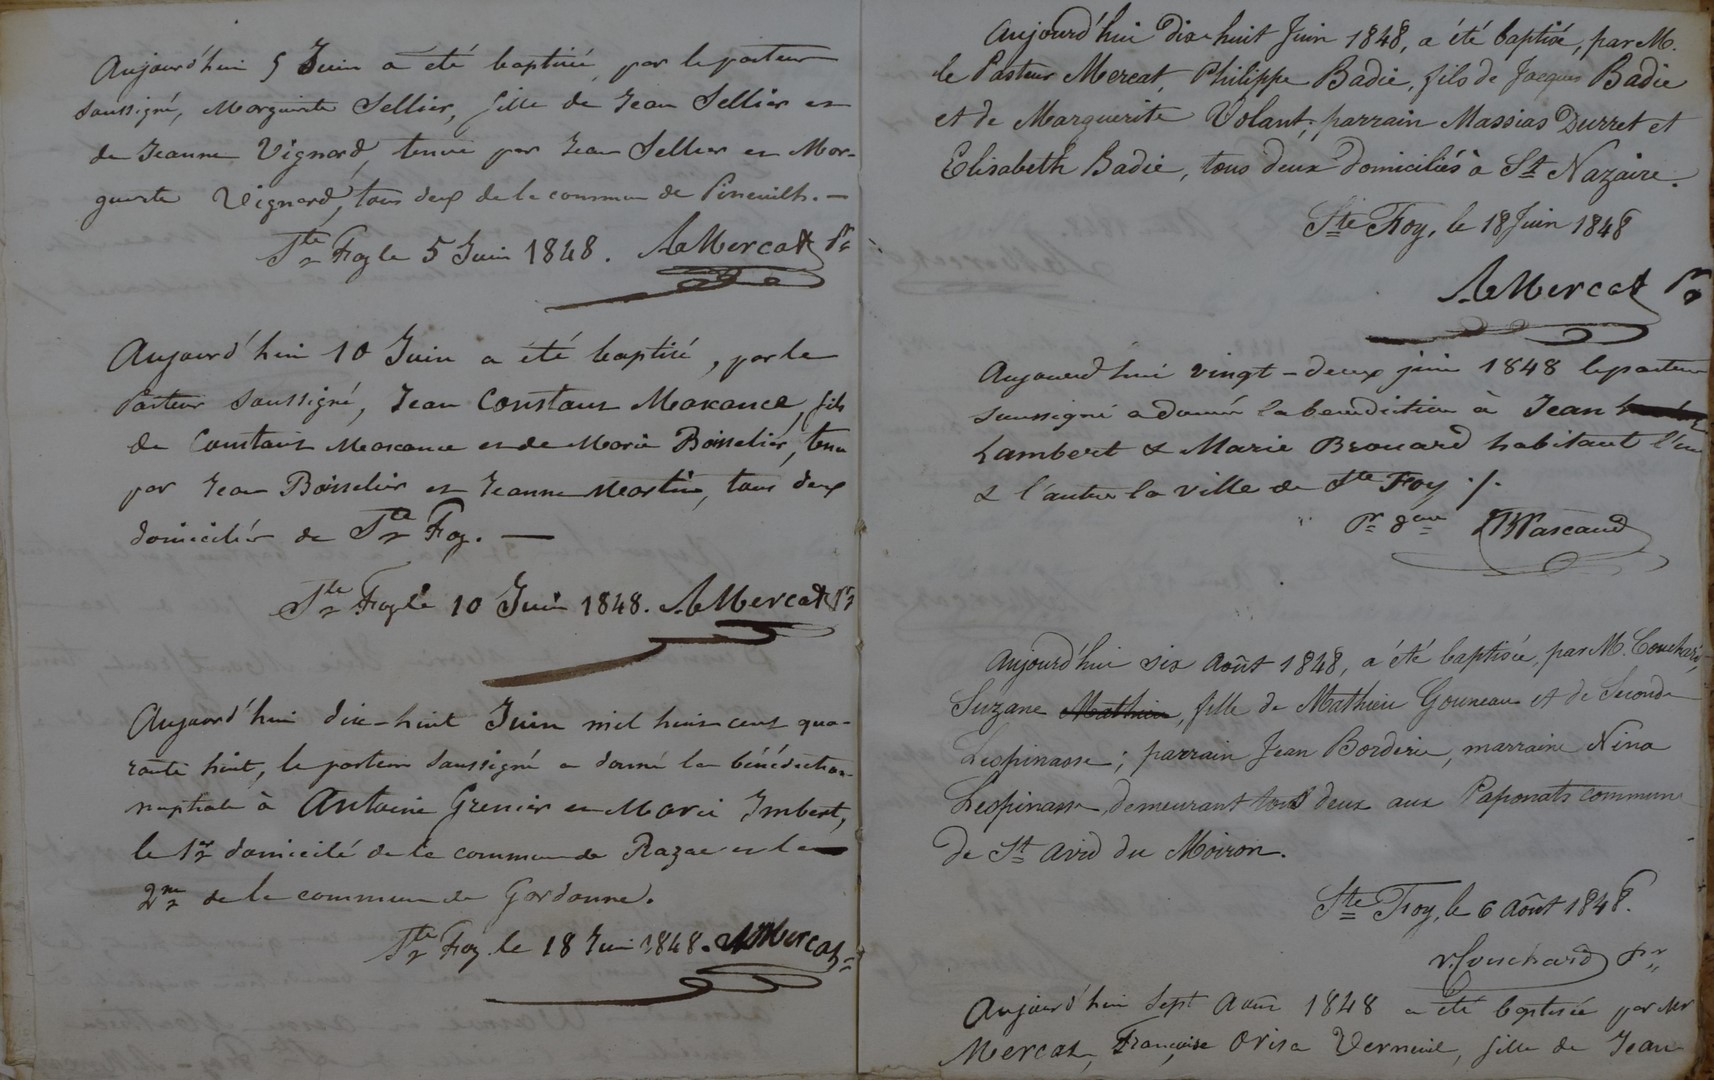 Aujourd'hui 5 Juin a été baptisée, par le pasteur
soussigné, Marguerite Sellier, fille de Jean Sellier et
de Jeanne Vignard, tenue par Jean Sellier et Mar-
guerite Vignard, tous deux de la commune de Pineuilh. —
Ste Foy le 5 Juin 1848. A. Mercat Pr
Aujourd'hui 10 Juin a été baptisé, par le
Pasteur soussigné, Jean Constant Maxance, fils
de Constant Maxance et de Marie Boisselier, tenu
par Jean Boisselier et Jeanne Martine, tous deux
domiciliés de Ste Foy. —
Ste Foy le 10 Juin 1848. A. Mercat Pr
Aujourd'hui dix-huit Juin mil huit cent qua-
rante huit, le pasteur soussigné a donné la bénédiction
nuptiale à Antoine Grenier et Marie Imbert,
le 1er domicilié de la commune de Razac et la
2me de la commune de Gardonne.
Ste Foy le 18 Juin 1848. A. Mercat
Aujourd'hui dix-huit Juin 1848, a été baptisé, par M.
le Pasteur Mercat, Philippe Badie, fils de Jacques Badie
et de Marguerite Volant; parrain Massias Durret et
Elisabeth Badie, tous deux domiciliés à St Nazaire.
Ste Foy, le 18 Juin 1848
A. Mercat Pr
Aujourd'hui vingt-deux juin 1848 le pasteur
soussigné a donné la bénédiction à Jean
Lambert & Marie Brouard habitant l'un
& l'autre la ville de Ste Foy ./.
Pascaud
Aujourd'hui six Août 1848, a été baptisée, par M. Couchard,
Suzane Mathieu, fille de Mathieu Gouneau et de Seconde
Lespinasse; parrain Jean Borderie, marraine Nina
Lespinasse, demeurant tous deux aux Paponats commune
de St Avid du Moiron.
Ste Foy, le 6 Août 1848.
Couchard Pr
Aujourd'hui sept Août 1848 a été baptisée par Mr
Mercat, Françoise Orisa Verneuil, fille de Jean